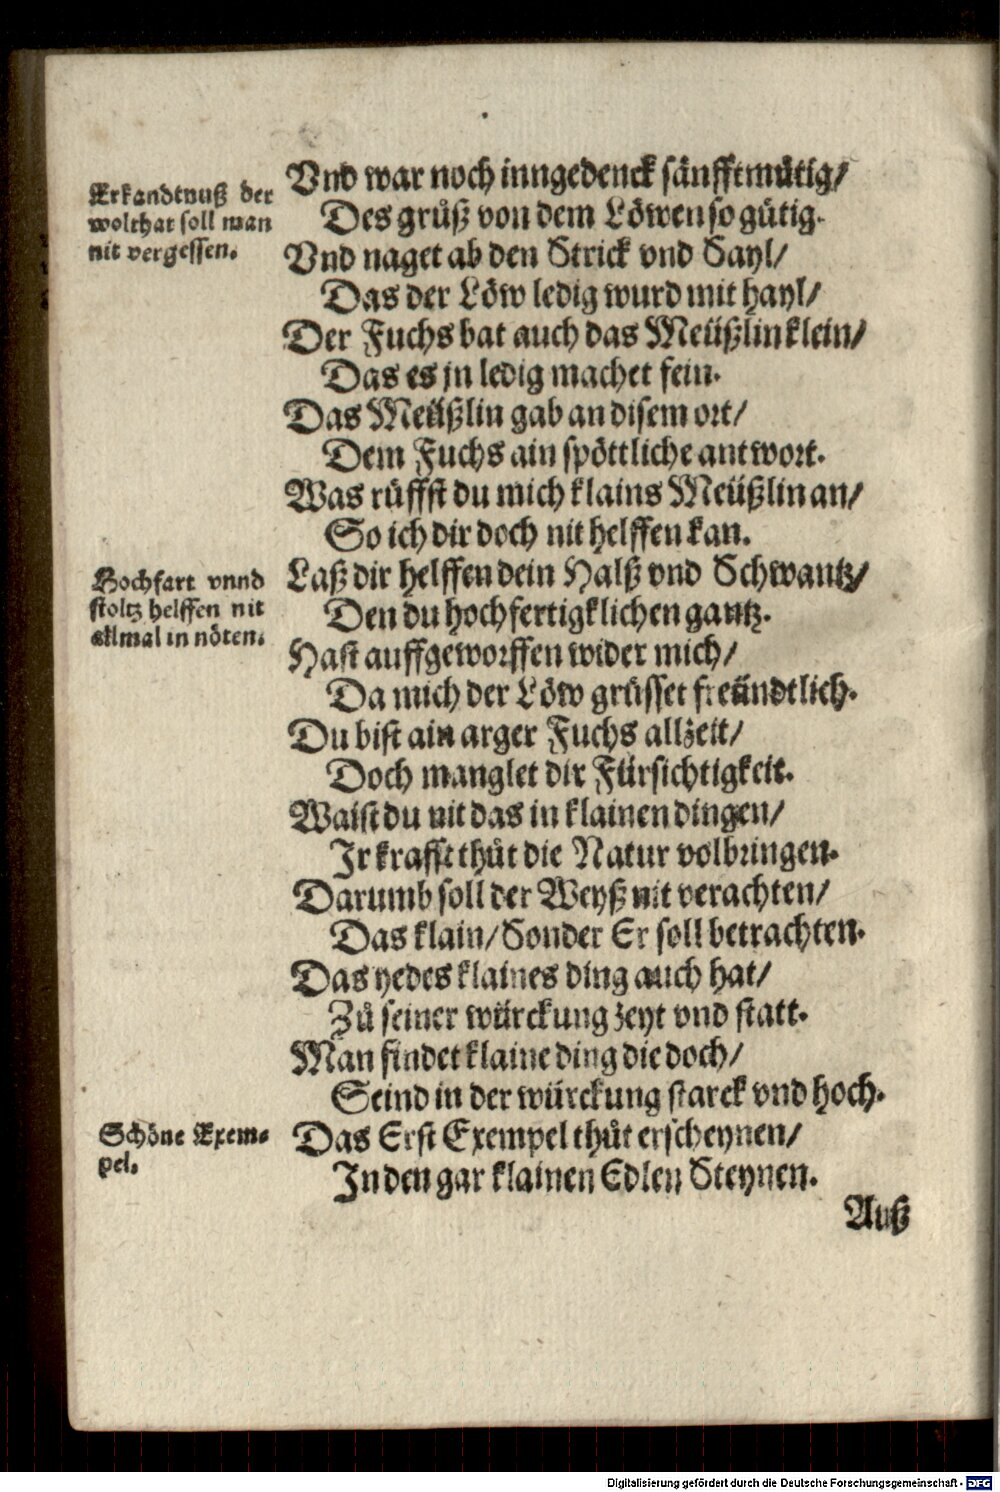 Erkandtnuß der
wolthat soll man
nit vergessen.
Vnd war noch inngedenck sänfftmütig/
Des grůß von dem Löwen so gütig.
Vnd naget ab den Strick vnd Sayl/
Das der Löw ledig wurd mit hayl/
Der Fuchs bat auch das Meüßlin klein/
Das es jn ledig machet fein.
Das Meüßlin gab an disem ort/
Dem Fuchs ain spöttliche antwort.
Was rüffst du mich klains Meüßlin an/
So ich dir doch nit helffen kan.
Hochfart vnnd
stoltz helffen nit
allmal in nöten.
Laß dir helffen dein Halß vnd Schwantz/
Den du hochfertigklichen gantz.
Hast auffgeworffen wider mich/
Da mich der Löw grüsset freündtlich.
Du bist ain arger Fuchs allzeit/
Doch manglet dir Fürsichtigkeit.
Waist du nit das in klainen dingen/
Ir krafft thůt die Natur volbringen.
Darumb soll der Weyß nit verachten/
Das klain/ Sonder Er soll betrachten.
Das yedes klaines ding auch hat/
Zů seiner würckung zeyt vnd statt.
Man findet klaine ding die doch/
Seind in der würckung starck vnd hoch.
Schöne Exem-
pel.
Das Erst Exempel thůt erscheynen/
In den gar klainen Edlen Steynen.
Auß
Digitalisierung gefördert durch die Deutsche Forschungsgemeinschaft - DFG